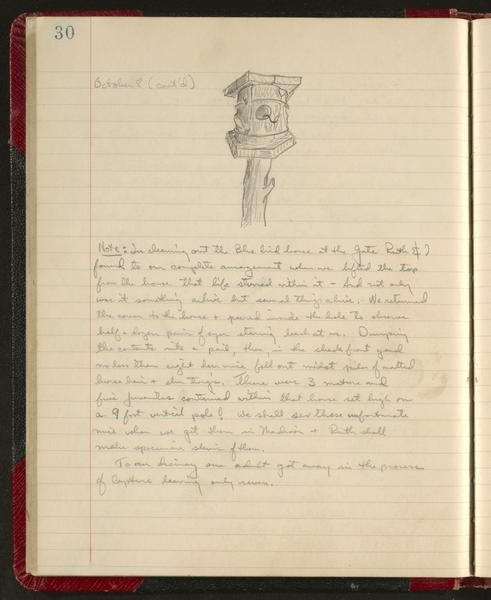 30
October 8 (cont'd)
Note: In cleaning out the Blue bird house at the Gate Ruth & I
found to our complete amazement when we lifted the top
from the house that life stirred within it - And not only
was it something alive but several things alive. We returned
the cover to the house & peered inside the hole to observe
half a dozen pairs of eyes staring back at us. Dumping
the contents into a pail, then, in the shack front yard
no less than eight deer mice fell out midst piles of matted
horse hair & elm twigs. There were 3 mature and
five juveniles contained within that house set high on
a 9 foot vertical pole! We shall sex these unfortunate
mice when we get them in Madison & Ruth shall
make specimen skins of them.
To our dismay one adult got away in the process
of capture leaving only seven.